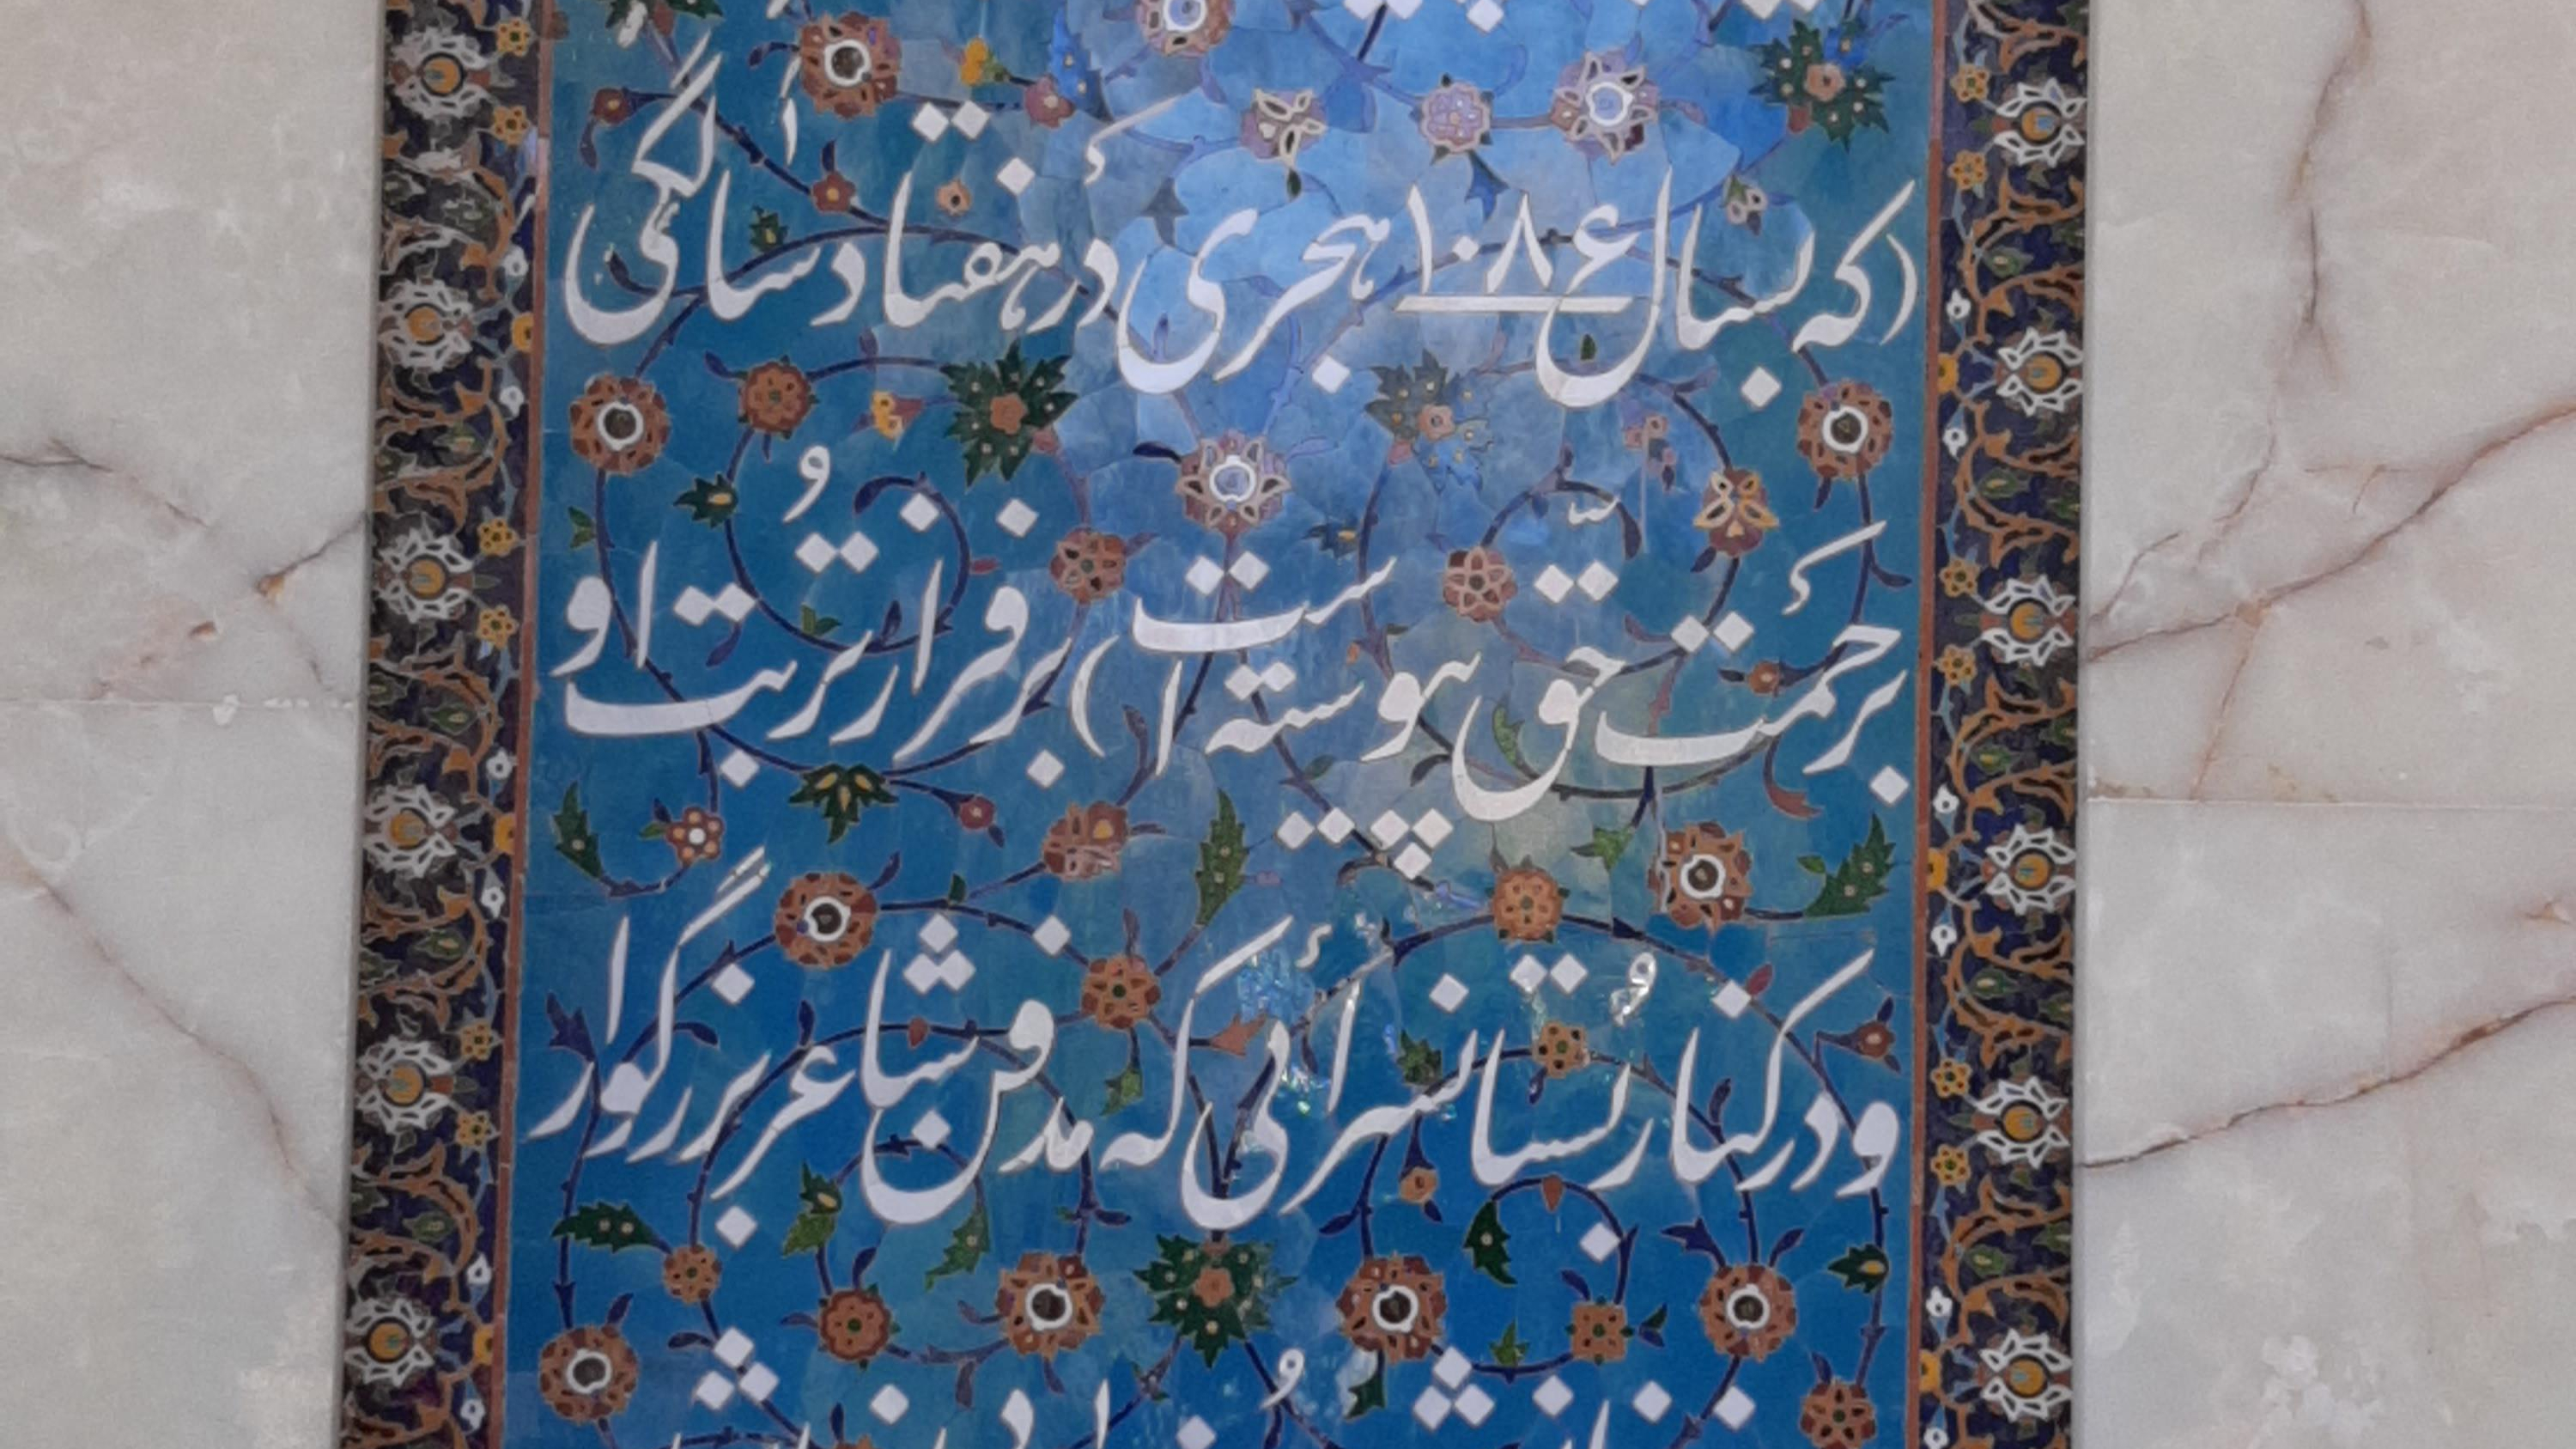 (که بسال ۱۰۸۶ هجری در هفتاد سالگی
برحمت حق پیوسته است) بر فراز تربت او
و در کنار بستانسرائی که مدفن شاعر بزرگوار